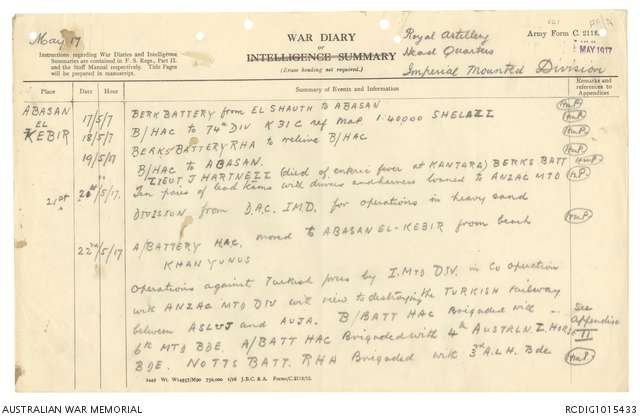 May 17
WAR DIARY
or
INTELLIGENCE SUMMARY
(Erase heading not required.)
Instructions regarding War Diaries and Intelligence
Summaries are contained in F. S. Regs., Part II.
and the Staff Manual respectively. Title Pages
will be prepared in manuscript.
Royal Artillery
Head Quarters
Imperial Mounted Division
Army Form C. 2118.
MAY 1917
Place
Date
Hour
Summary of Events and Information
Remarks and
references to
Appendices
ABASAN
EL
KEBIR
17/5/17 BERK BATTERY from EL SHAUTH to ABASAN
18/5/17 B/HAC to 74th DIV K31C ref Map 1.40000
BERKS BATTERY RHA to relieve B/HAC
19/5/17 B/HAC to ABASAN.
LIEUT J (died of enteric fever at KANTARA) BERKS BATT
21st 20th/5/17. Ten pairs of lead with drivers and harness loaned to ANZAC MTD
DIVISION from D.A.C. I.M.D. for operations in heavy sand
A/BATTERY HAC. moved to ABASAN EL-KEBIR from beach
KHAN YUNUS
22nd/5/17
Operations against Turkish by I.MTD DIV. in Co operation
with ANZAC MTD DIV with view to destroying the TURKISH Railway
between ASLUJ and AUJA. B/BATT HAC Brigaded with
6th MTD BDE A/BATT HAC Brigaded with 4th AUSTALN L HORSE
BDE. NOTTS BATT. RHA Brigaded with 3rd A.L.H. Bde
See
Appendix
II